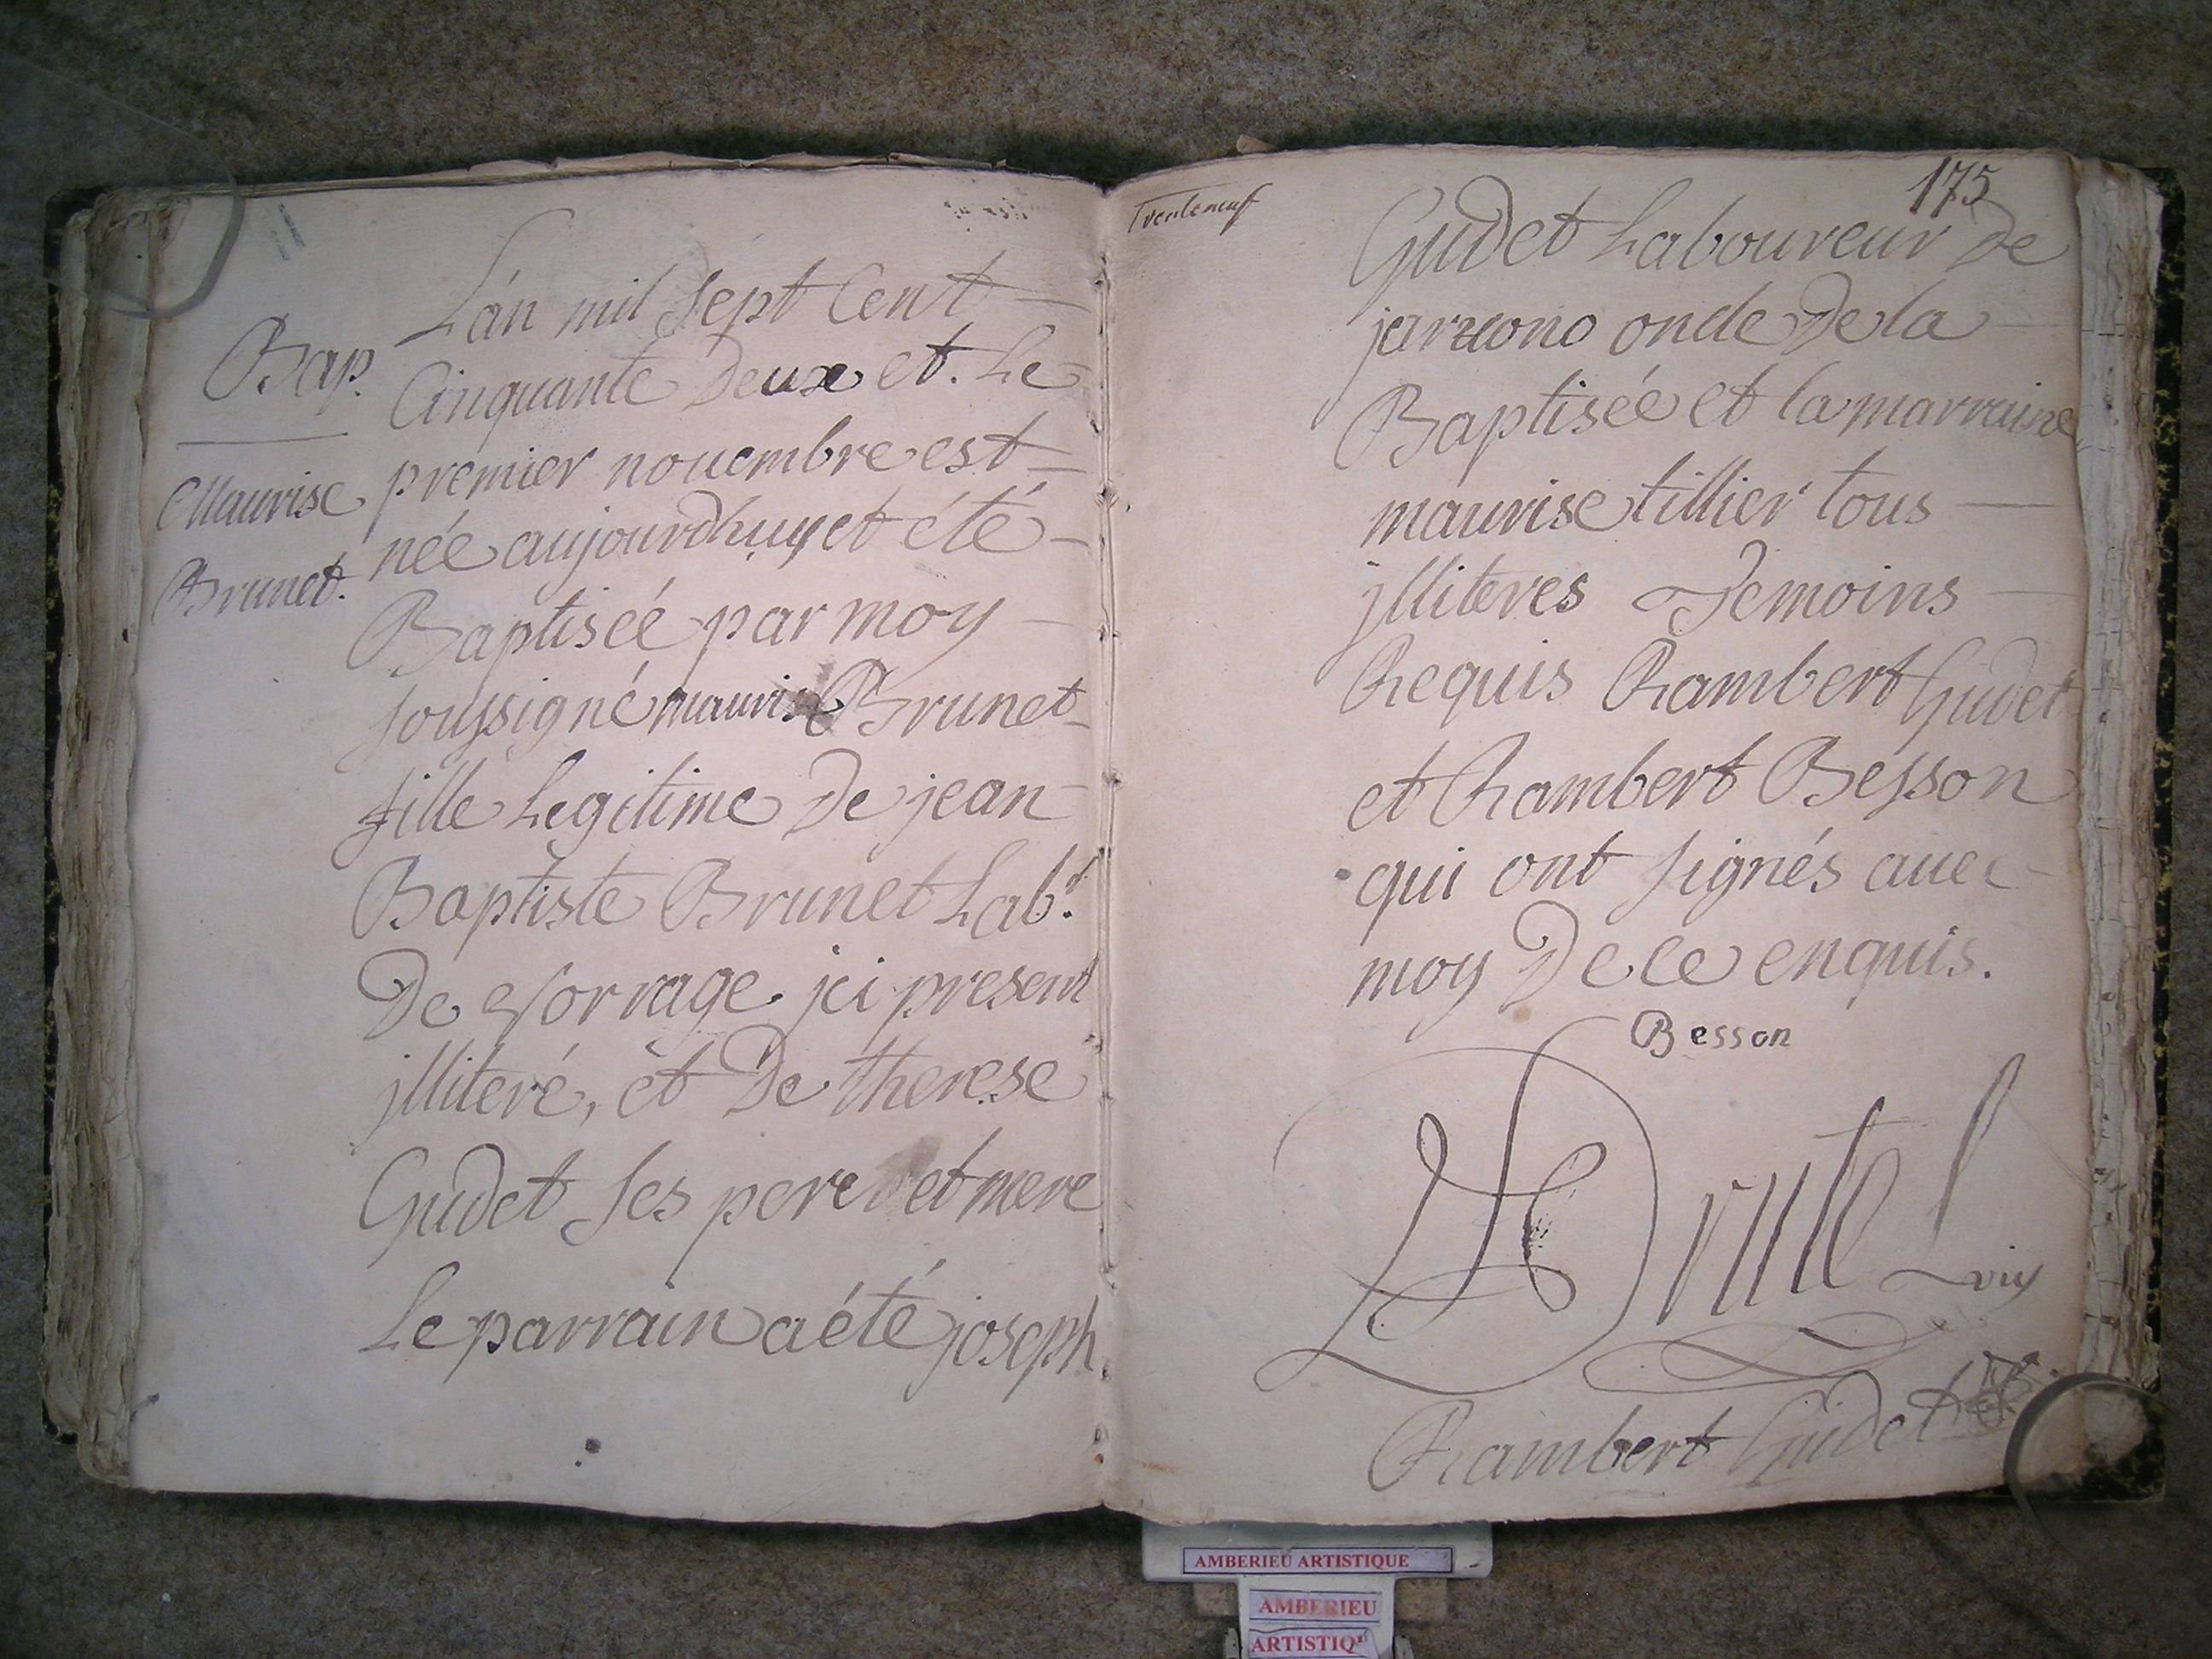 Bap.
Maurise
Brunet.
L'án mil sept Cent
Cinquante Deux et. Le
premier nouembre est
née aujourdhuy et été
Baptisée par moy
soussigné maurise Brunet
fille Legitime De jean
Baptiste Brunet Labr.
De jci present
jlliteré, et De therese
Gudet ses pere et mere
Le parrain a été joseph
Trenteneuf
175
Gudet Laboureur de
oncle De la
Baptisée et la marraine
maurise tillier tous
jlliteres Temoins
Requis Rambert Gudet
et Rambert Besson
qui ont signés auec
moy De ce enquis.
Besson
Drutel
Rambert Gudet
AMBERIEU ARTISTIQUE
AMBERIEU
ARTISTIQ